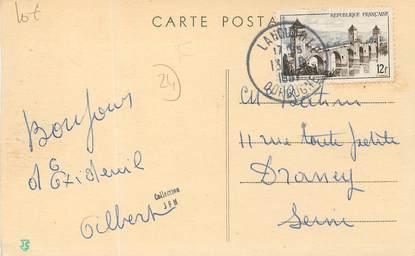 Lot
CARTE POSTA
REPUBLIQUE FRANÇAISE
12F
DORDOGNE
24
Bonjour
d'Exideuil
Gilbert
Collection
J F M
11 rue toute petite
Drancy
Seine